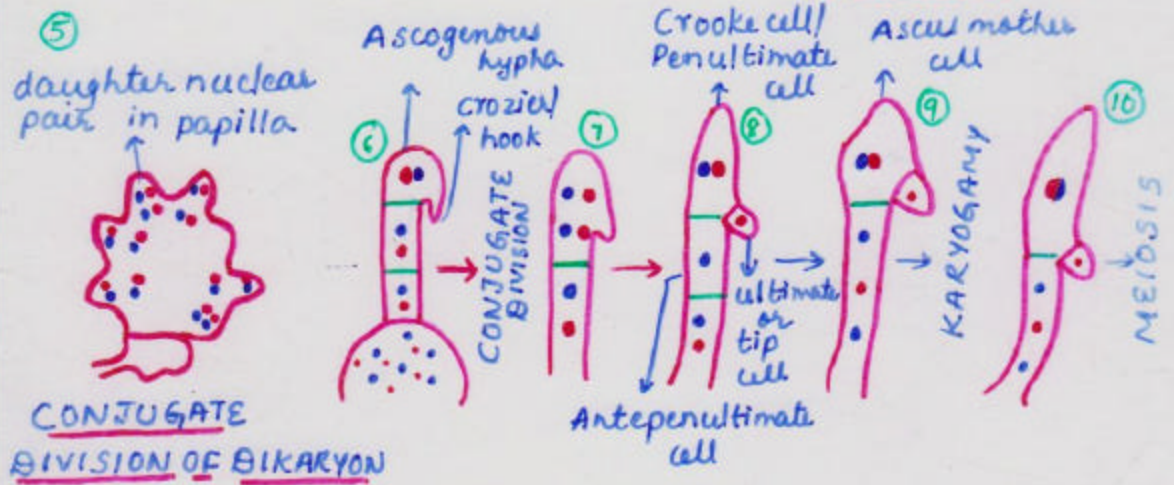 5
daughter nuclear
pair in papilla
CONJUGATE
DIVISION OF DIKARYON
Ascogenous
hypha
crozier/
hook
6
CONJUGATE
DIVISION
7
Crooke cell/
Penultimate
cell
8
ultimate
or
tip
cell
Antepenultimate
cell
Ascus mother
cell
9
KARYOGAMY
10
MEIOSIS